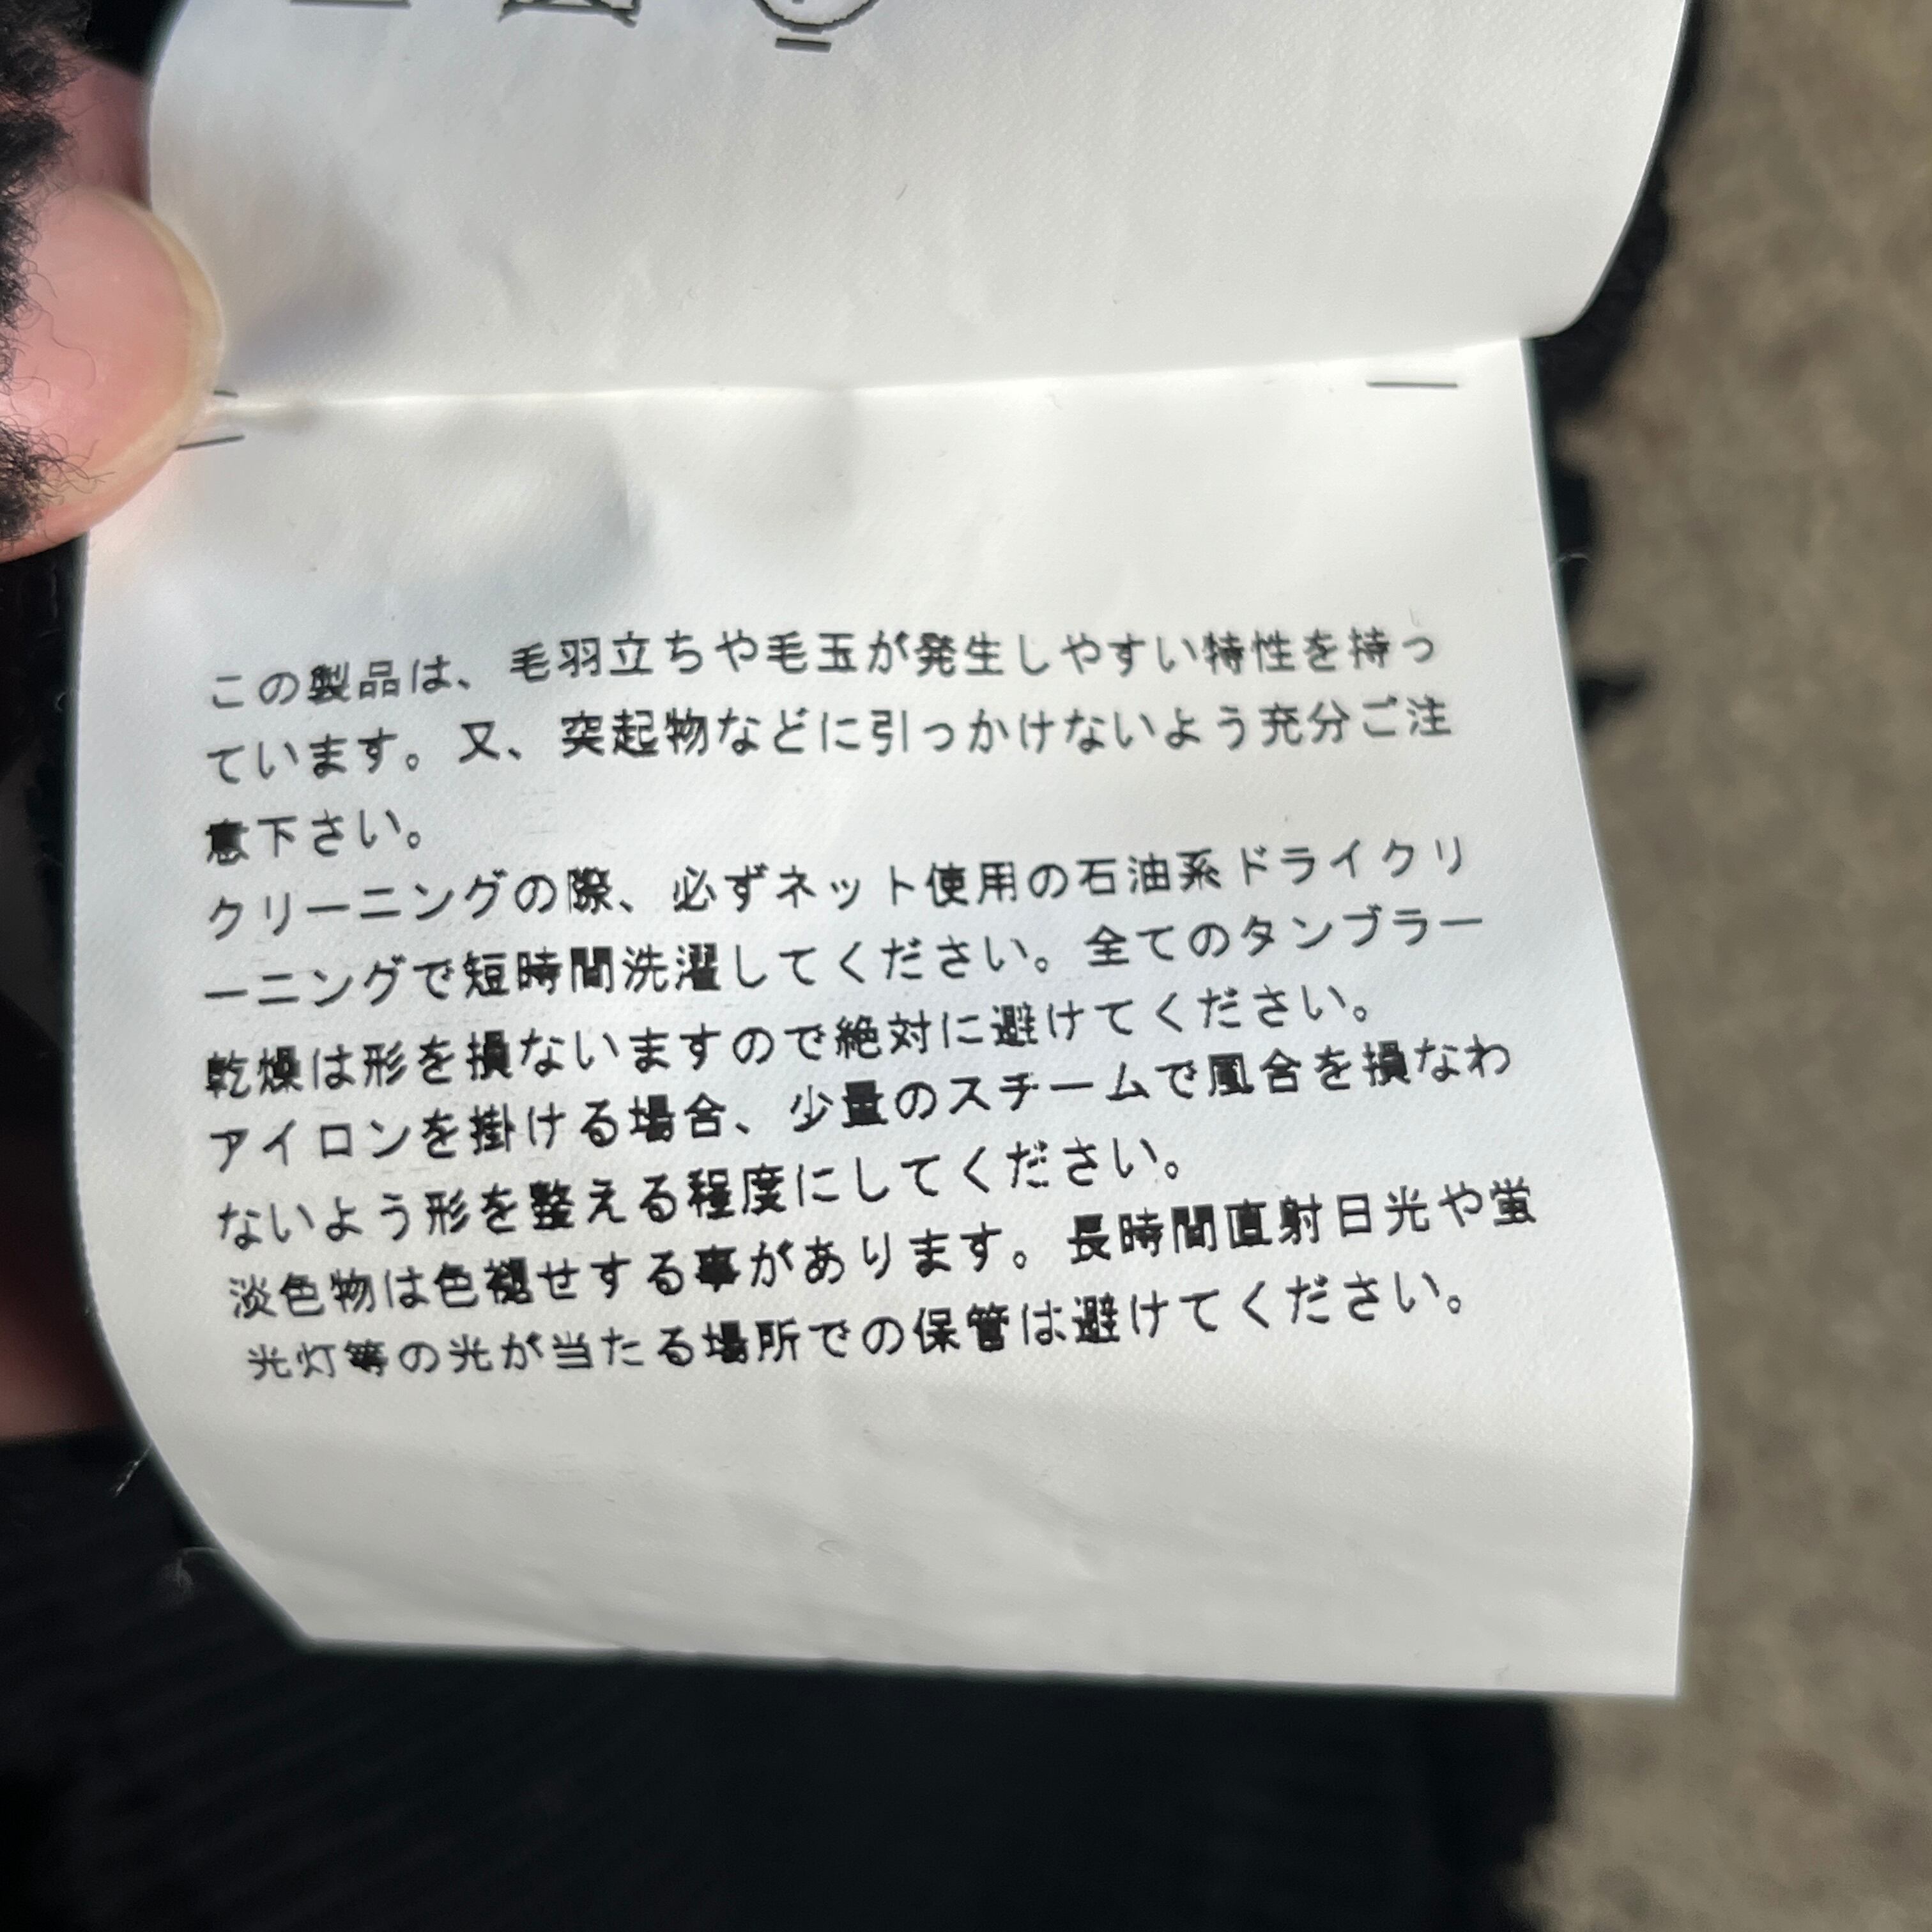 この製品は、毛羽立ちや毛玉が発生しやすい特性を持っ
ています。又、突起物などに引っかけないよう充分ご注
意下さい。
クリーニングの際、必ずネット使用の石油系ドライクリ
ーニングで短時間洗濯してください。全てのタンブラー
乾燥は形を損ないますので絶対に避けてください。
アイロンを掛ける場合、少量のスチームで風合を損なわ
ないよう形を整える程度にしてください。
淡色物は色褪せする事があります。長時間直射日光や蛍
光灯等の光が当たる場所での保管は避けてください。